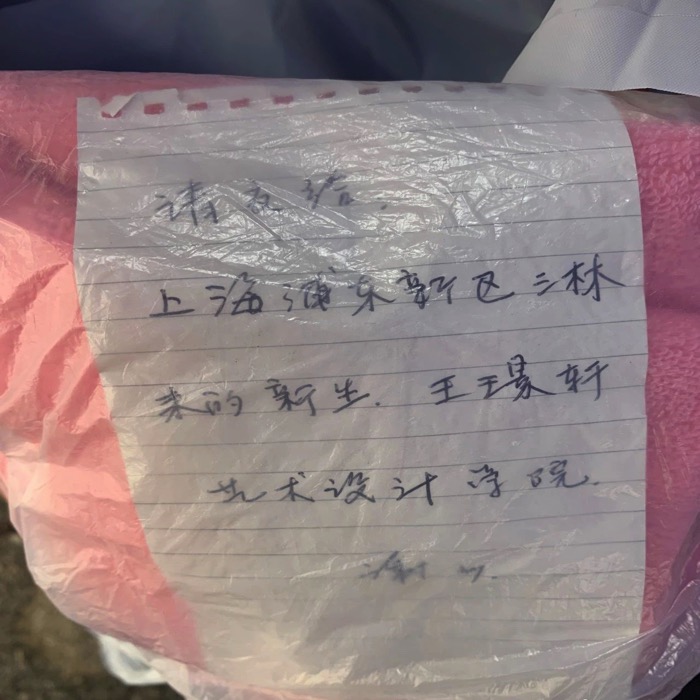 请交给.
上海浦东新区三林
来的新生.王璟轩
艺术设计学院.
谢谢.